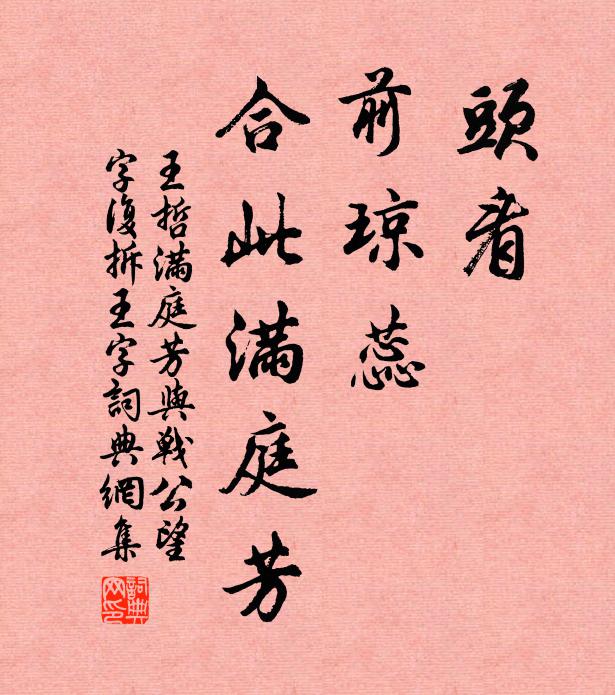 頭看
前琼蕊
合此滿庭芳
王哲滿庭芳與戰公望
字復拆王字詞典網集
詞典网印